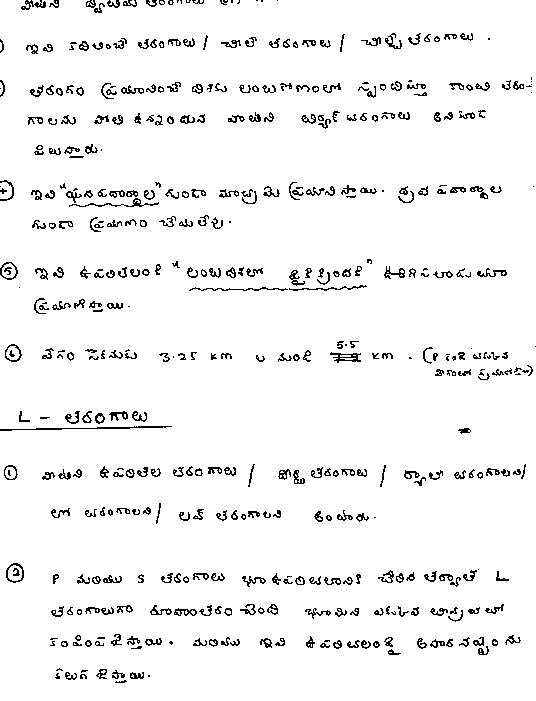 వాటిని ద్వితీయ తరంగాలు
ఇవి కదిలించే తరంగాలు / చాలే తరంగాలు / తరంగాలు .
తరంగం ప్రయాణించే దిశకు లంబకోణంలో స్పందిస్తూ కాంతి తరం-
గాలను పోలి ఉన్నందున వాటిని తిర్యక్ తరంగాలు అని కూడా
పిలుస్తారు.
ఇవి "ఘన పదార్థాల" గుండా మాత్రమే ప్రయాణిస్తాయి. ద్రవ పదార్థాల
గుండా ప్రయాణం చేయలేవు.
⑤ ఇవి ఉపరితలంకి "లంబదిశలో పైకి క్రిందికి" ఊగిసలాడుతూ
ప్రయాణిస్తాయి.
⑥ వేగం సెకనుకు 3.25 km ల నుండి 5.5 km . (P కంటే తక్కువ
వేగంతో ప్రయాణం)
L - తరంగాలు
① వీటిని ఉపరితల తరంగాలు / దీర్ఘ తరంగాలు / ర్యాలీ తరంగాలని/
లో తరంగాలని/ లవ్ తరంగాలని అంటారు.
② P మరియు S తరంగాలు భూఉపరితలానికి చేరిన తర్వాత L
తరంగాలుగా రూపాంతరం చెంది భూమిని ఎక్కువ తీవ్రతతో
కంపింపజేస్తాయి. మరియు ఇవి ఉపరితలంపై అపార నష్టంను
కలుగజేస్తాయి.